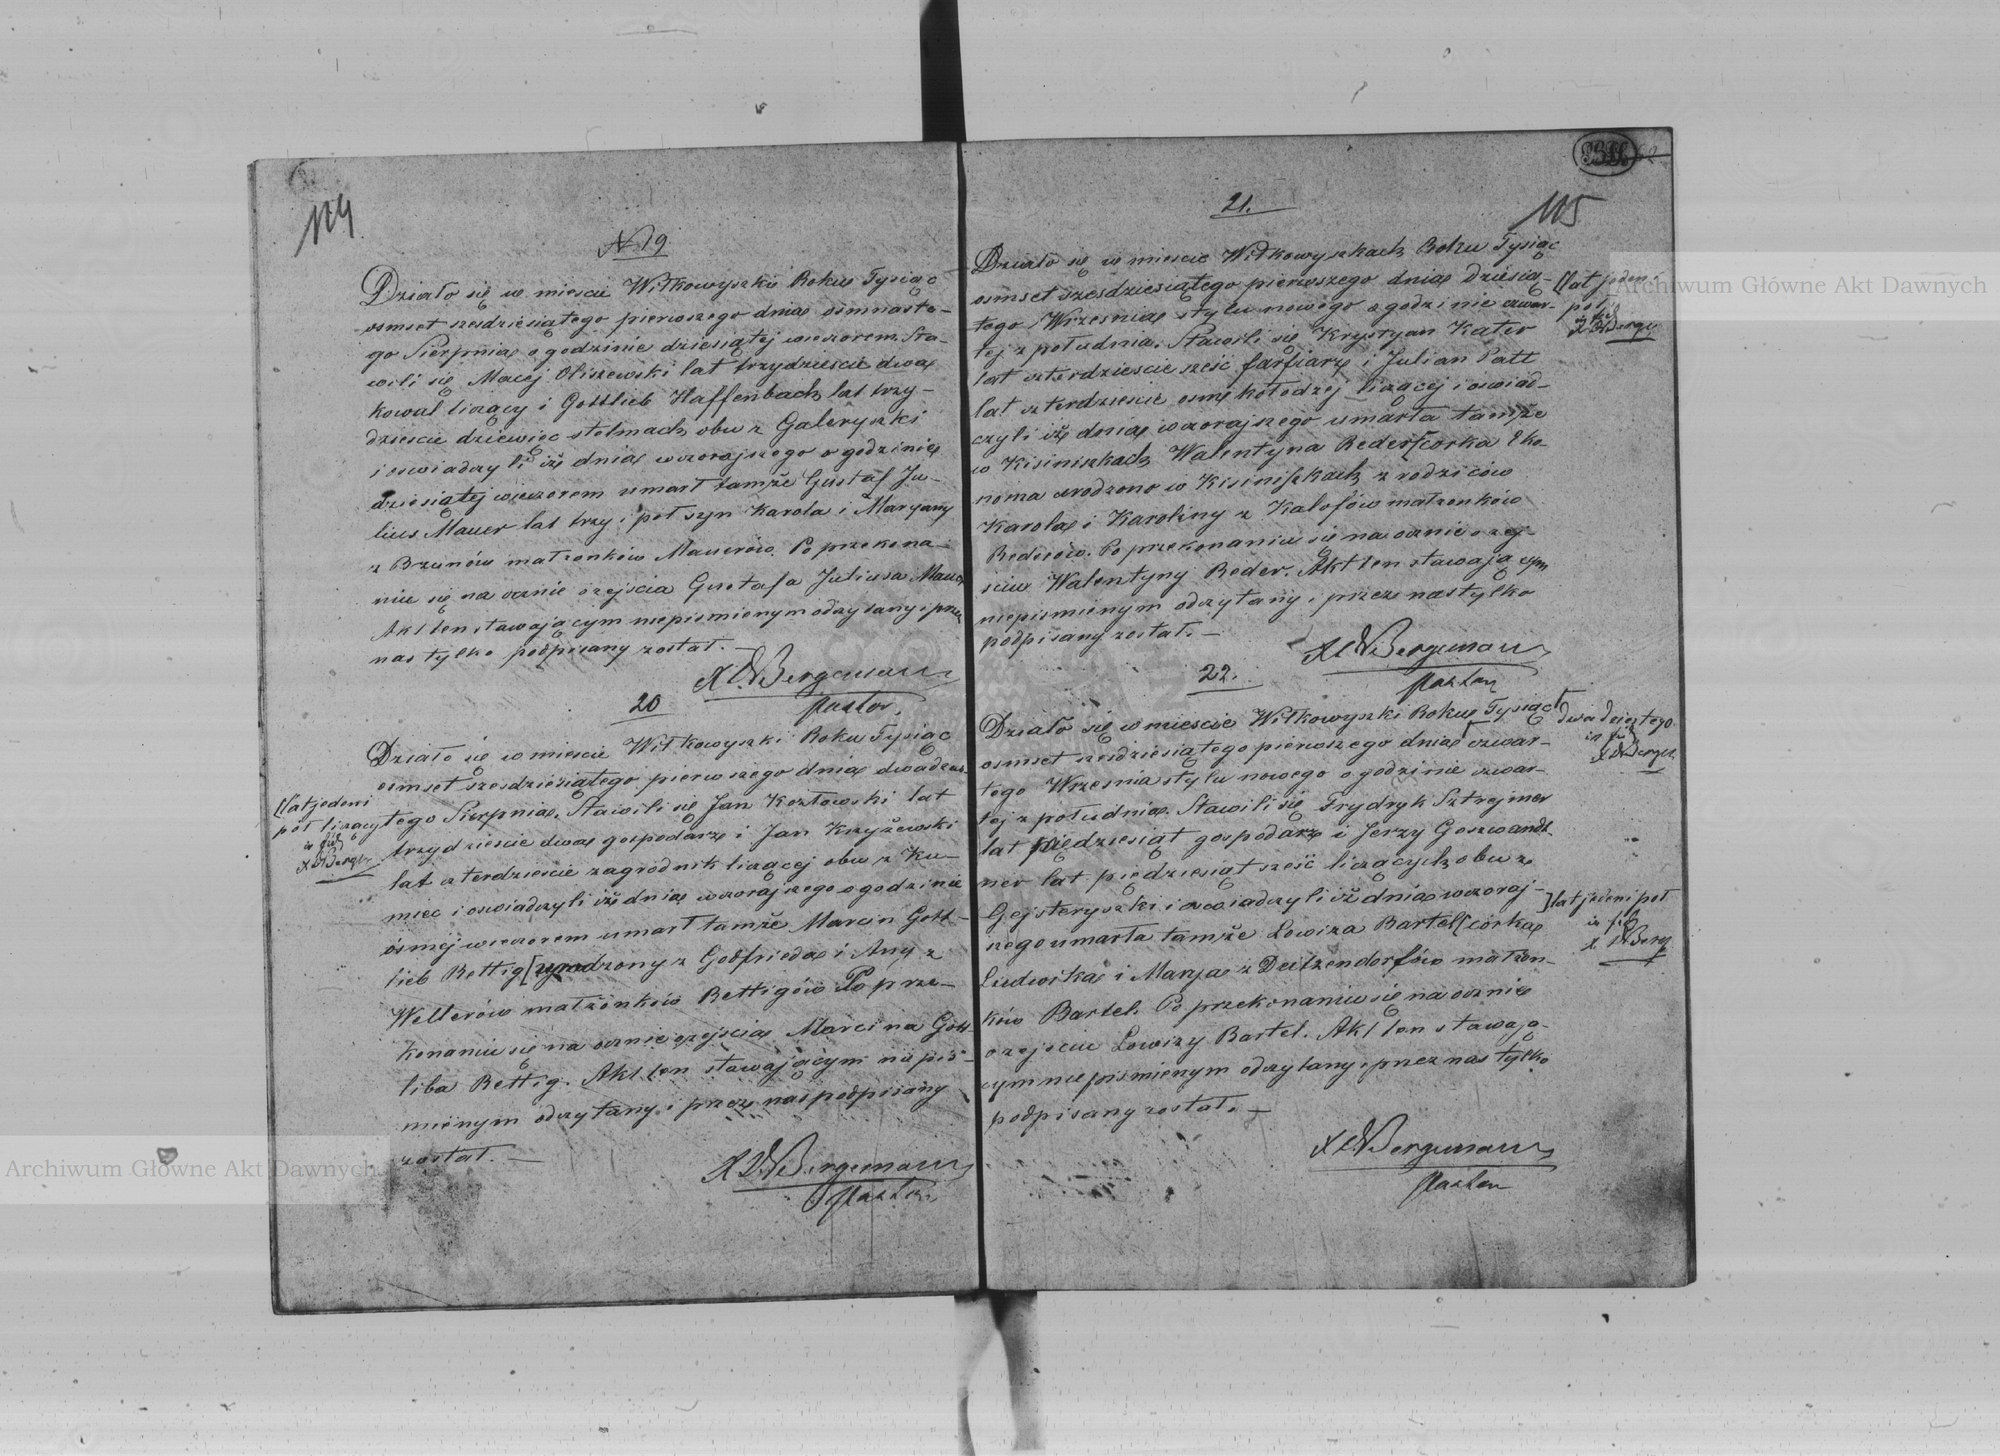 114
N 19
Działo się w mieście Wiłkowyszki Roku Tysiąc
osmset szesdziesiątego pierwszego dnia osmnaste-
go Sierpnia o godzinie dziesiątej wieczorem. Sta-
wili się Maciej Oliszewski lat trzydzieście dwa
kowal liczący i Gottlieb Haffenbach lat trzy-
dzieście dziewięc stelmach obu z Galeryszki
i oswiadczyli iż dnia wczorajszego o godzinie
dziesiątej wieczorem umarł tamże Gustaf Ju-
lius Mauer lat trzy i poł syn Karola i Maryany
z Brzunów małżonków Mauerów. Po przekona-
niu się na ocznie o zejścia Gustafa Juliusa Mauer
Akt ten stawającym niepismienym odczytany i przez
nas tylko podpisany został. —
X. W Bergemann
Pastor.
20
Działo się w mieście Wiłkowyszki Roku Tysiąc
osmset szesdziesiątego pierwszego dnia dwadzies-
tego Sierpnia. Stawili się Jan Kozłowski lat
trzydzieście dwa gospodarz i Jan Krzyżewski
lat czterdzieście zagrodnik liczącej obu z Ku-
miec i oswiadczyli iż dnia wczorajszego o godzinie
ósmej wieczorem umarł tamże Marcin Gott-
lieb Rettig [urodzony z Godfrieda i Any z
Wellerów małżonków Rettigów Po prze-
konaniu się na ocznie o zejścia Marcina Gott-
liba Rettig. Akt ten stawającym nie pis-
mienym odczytany i przez nas podpisany
został. —
[lat jeden i
poł liczący
X W Berger
X. W Bergemann
Pastor
115
21.
Działo się w mieście Wiłkowyszkach Roku Tysiąc
osmset szesdziesiątego pierwszego dnia dziesią-
tego Wrzesnia stylu nowego o godzinie czwar-
tej z południa. Stawili się Krystyan Kater
lat czterdzieście sześć farfiarz i Julian Patt
lat czterdzieście osm kołodzej liczącej i oswiad-
czyli iż dnia wczorajszego umarła tamże
w Kisiniszkach Walentyna Reder [corka Eko
noma urodzono w Kisiniszkach z rodziców
Karola i Karoliny z Kalofów małżonków
Rederów. Po przekonaniu się na ocznie o zej-
sciu Walentyny Reder. Akt ten stawającym
niepismienym odczytany i przez nas tylko
podpisany został. —
[lat jeden i
poł
X W Berge
X W Bergemann
Pastor
22.
Działo się w mieście Wiłkowyszki Roku Tysiąc
osmset szesdziesiątego pierwszego dnia [czwar-
tego Wrzesnia stylu nowego o godzinie czwar-
tej z południa. Stawili się Frydryk Sztrejmer
lat piędziesiąt gospodarz i Jerzy Goszwandt
ner lat piędziesiąt sześć liczących obu z
Gejsteryszki i oswiadczyli iż dnia wczoraj-
szego umarła tamże Lowiza Bartel [córka
Ludwika i Marya z Deitzendorfów małżon-
ków Bartel. Po przekonaniu się na ocznie
o zejściu Lowizy Bartel. Akt ten stawają-
cym nie pismienym odczytany i przez nas tylko
podpisany został. —
dwadziestego
X W Berger
]lat jeden i poł
X. W Berg
X W Bergemann
Pastor
Archiwum Główne Akt Dawnych
Archiwum Główne Akt Dawnych